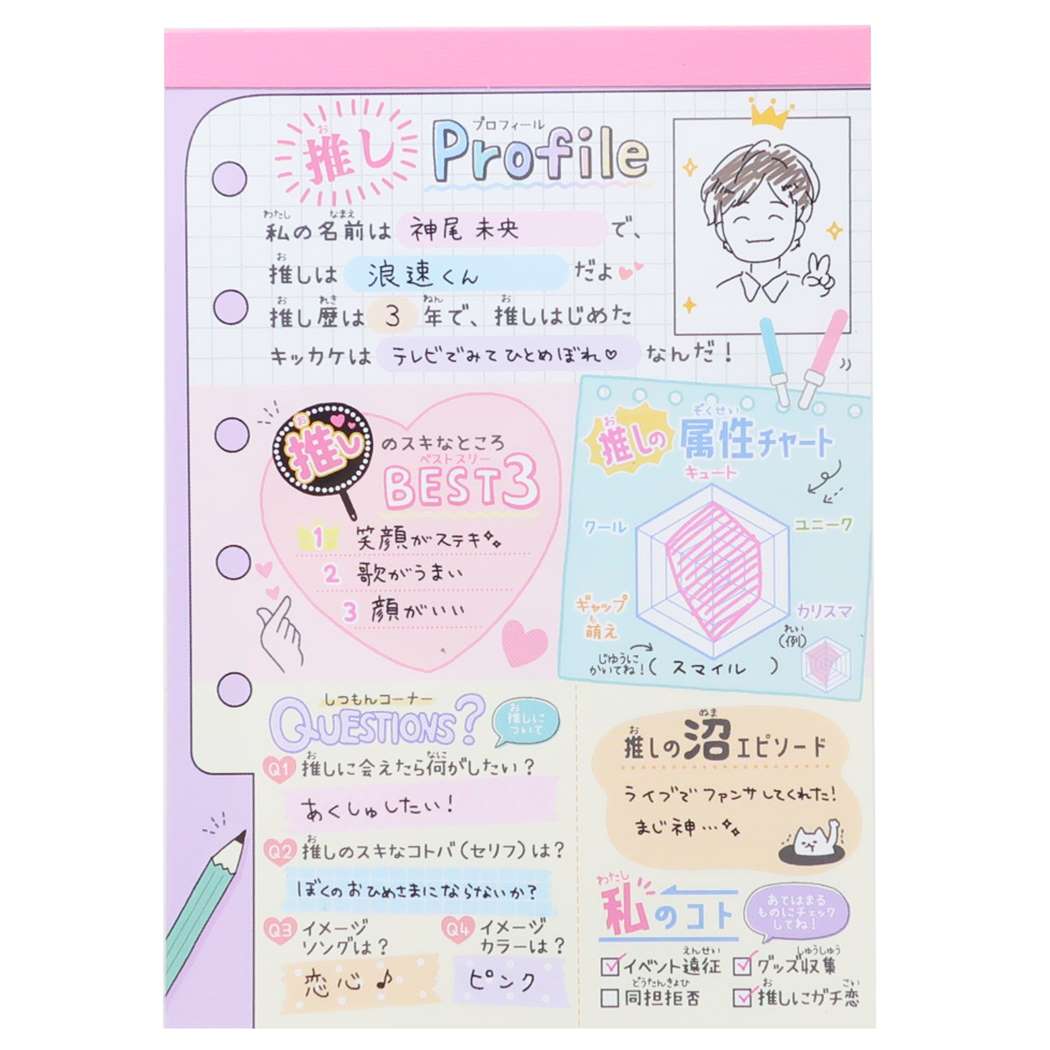 推し Profile
プロフィール
私の名前は 神尾 未央 で、
推しは 浪速くん だよ
推し歴は 3 年で、推しはじめた
キッカケは テレビでみてひとめぼれ♡ なんだ！
推しのスキなところ
ベストスリー
BEST3
1 笑顔がステキ
2 歌がうまい
3 顔がいい
推しの属性チャート
キュート
クール
ユニーク
ギャップ萌え
カリスマ
(例)
じゆうにかいてね！( スマイル )
しつもんコーナー
QUESTIONS?
推しについて
Q1 推しに会えたら何がしたい？
あくしゅしたい！
Q2 推しのスキなコトバ(セリフ)は？
ぼくのおひめさまにならないか？
Q3 イメージソングは？
恋心♪
Q4 イメージカラーは？
ピンク
推しの沼エピソード
ライブでファンサしてくれた！
まじ神…
私のコト
あてはまるものにチェックしてね！
イベント遠征
グッズ収集
同担拒否
推しにガチ恋